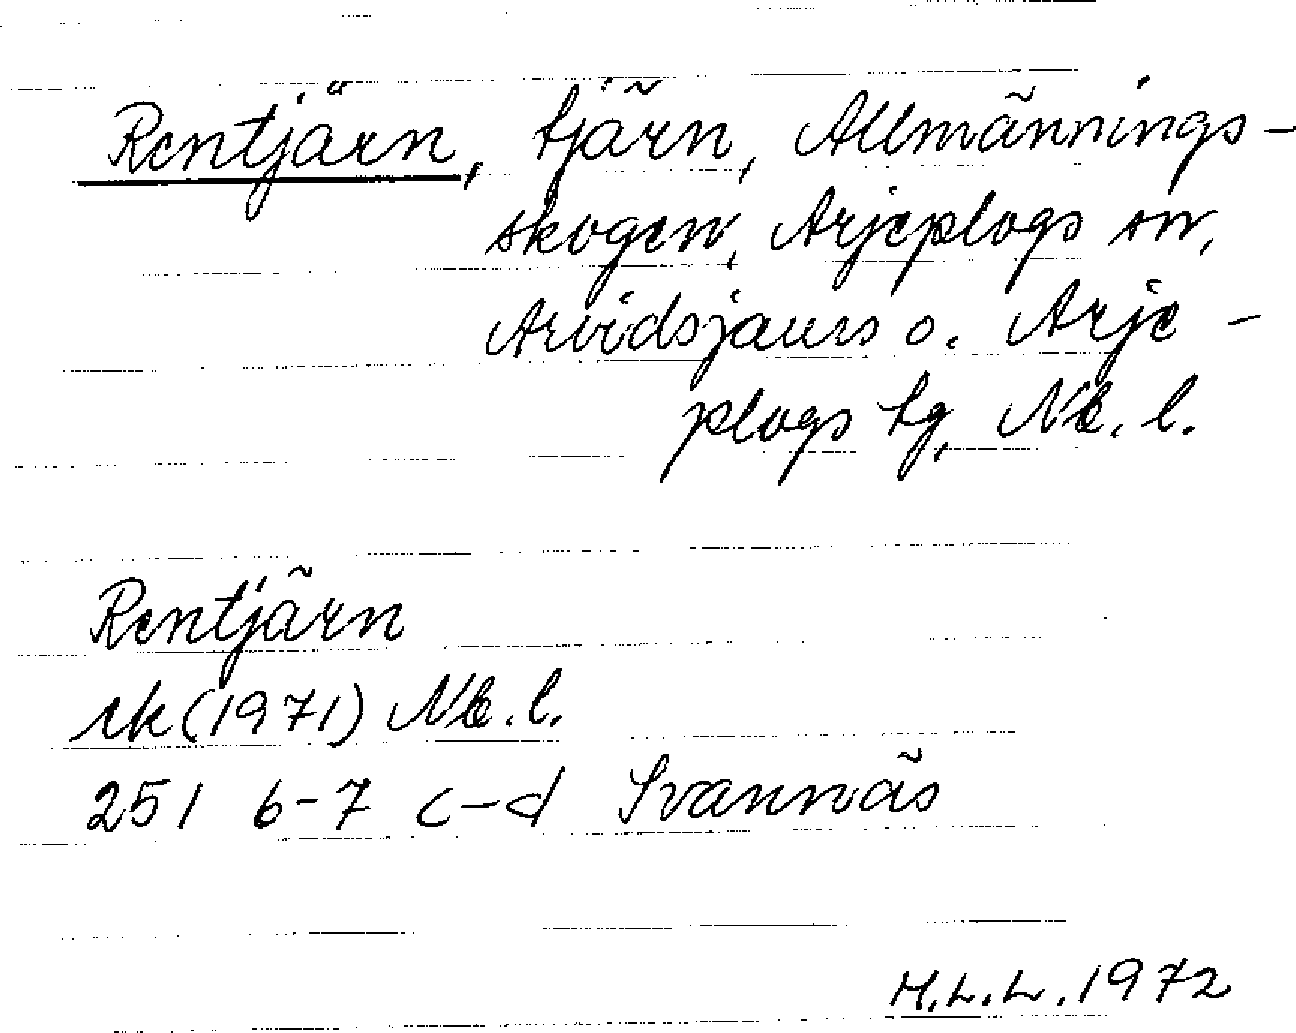 Rentjärn, tjärn, Allmännings-
skogen, Arjeplogs sn,
Arvidsjaurs o. Arje-
plogs tg, Nb. l.
Rentjärn
rk (1971) Nb. l.
25 I 6-7 c-d Svannäs
M.L.L. 1972